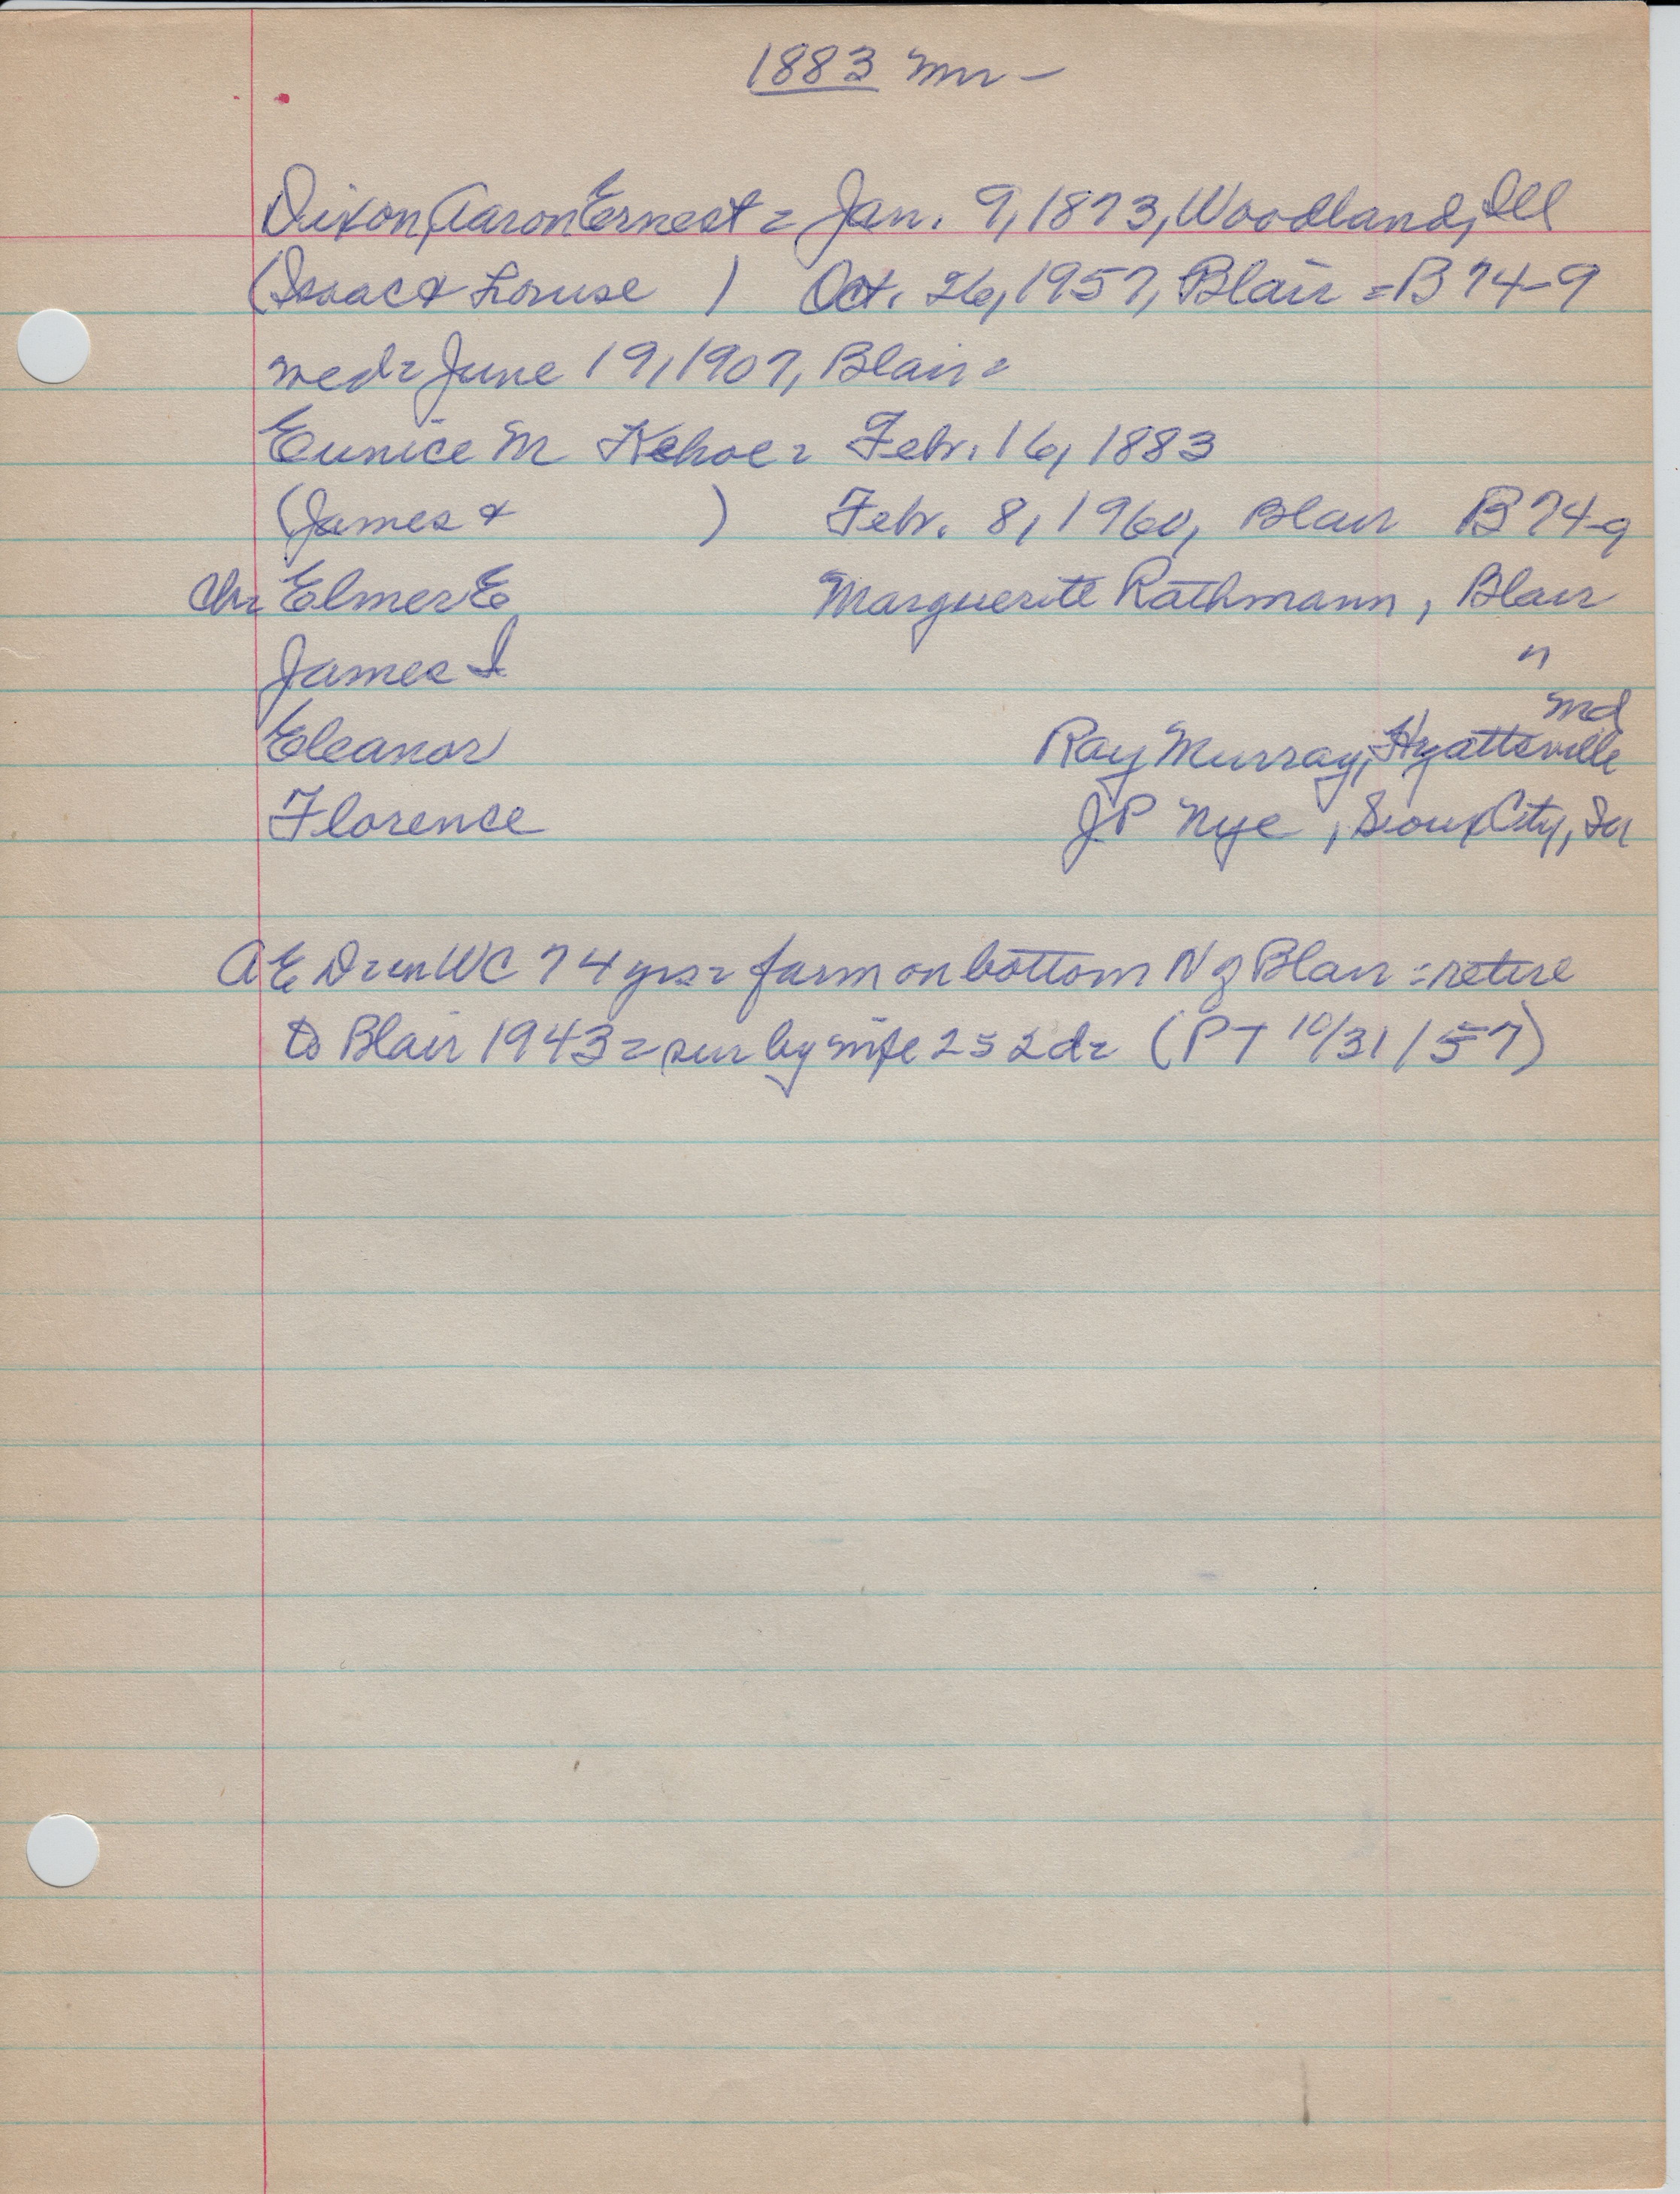 1883 mr -
Dixon, Aaron Ernest = Jan. 9, 1873, Woodland, Ill
(Isaac & Louise ) Oct. 26, 1957, Blair = B 74-9
wed = June 19, 1907, Blair =
Eunice M Kehoe = Febr. 16, 1883
(James & ) Febr. 8, 1960, Blair B 74-9
Ch= Elmer E Marguerite Rathmann, Blair
James I "
Eleanor Ray Murray, Hyattsville Md
Florence J P Nye, Sioux City, Ia
A E D = in WC 74 yrs = farm on bottom N of Blair = retire
to Blair 1943 = sur by wife 2 s 2 d = (PT 10/31/57)